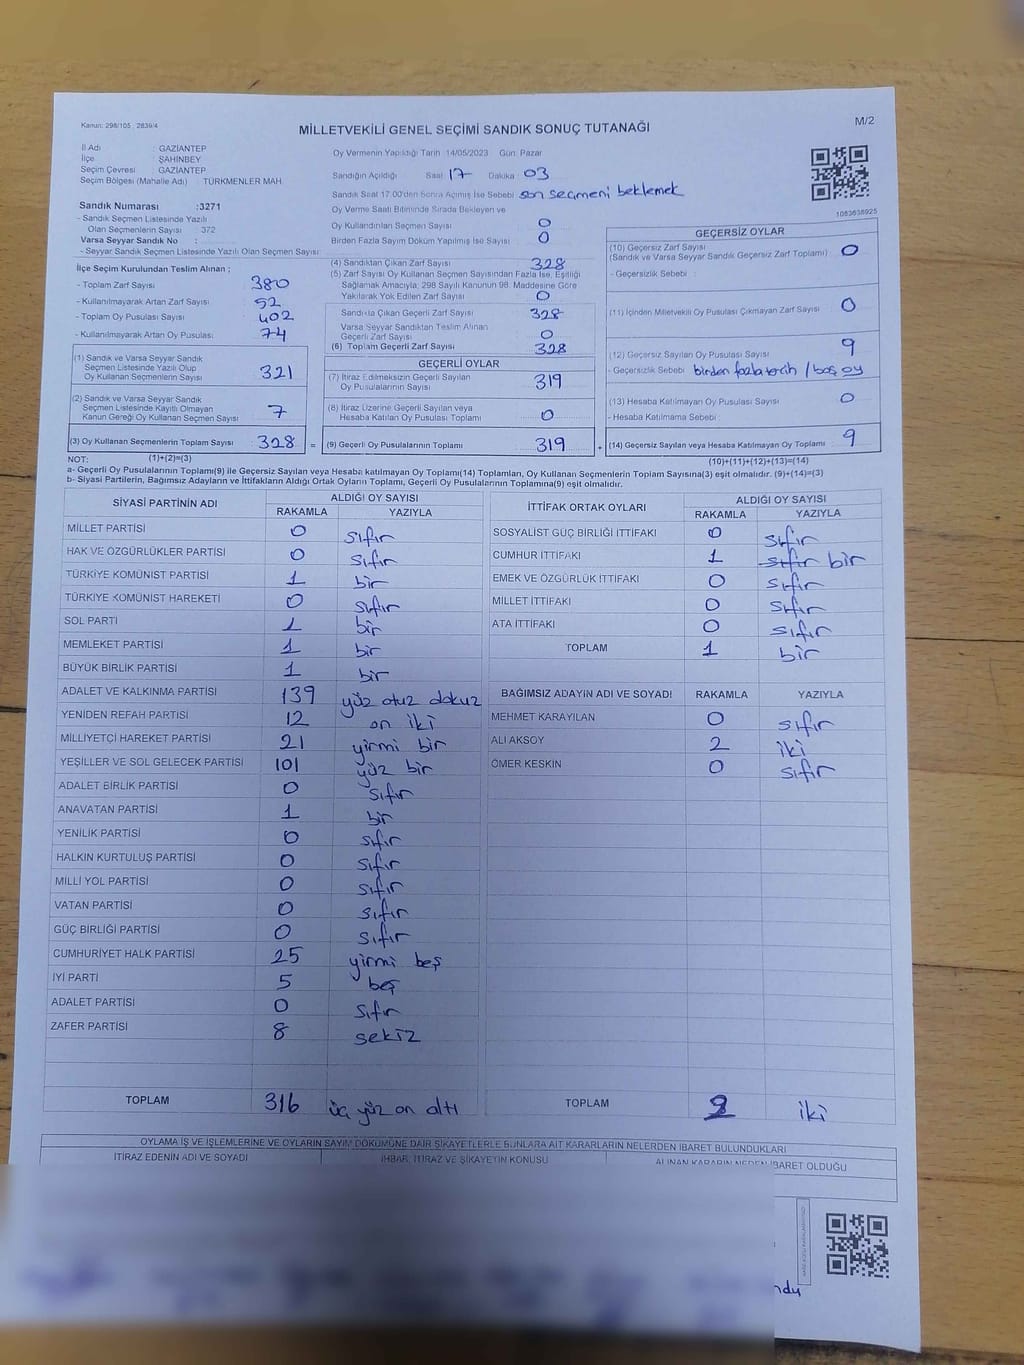 Kanun: 298/105 2839/4
MİLLETVEKİLİ GENEL SEÇİMİ SANDIK SONUÇ TUTANAĞI
M/2
İl Adı : GAZİANTEP
İlçe : ŞAHİNBEY
Seçim Çevresi : GAZİANTEP
Seçim Bölgesi (Mahalle Adı) : TÜRKMENLER MAH.
Sandık Numarası :3271
- Sandık Seçmen Listesinde Yazılı
Olan Seçmenlerin Sayısı : 372
Varsa Seyyar Sandık No :
- Seyyar Sandık Seçmen Listesinde Yazılı Olan Seçmen Sayısı :
İlçe Seçim Kurulundan Teslim Alınan ;
- Toplam Zarf Sayısı 380
- Kullanılmayarak Artan Zarf Sayısı 52
- Toplam Oy Pusulası Sayısı 402
- Kullanılmayarak Artan Oy Pusulası 74
(1) Sandık ve Varsa Seyyar Sandık
Seçmen Listesinde Yazılı Olup
Oy Kullanan Seçmenlerin Sayısı 321
(2) Sandık ve Varsa Seyyar Sandık
Seçmen Listesinde Kayıtlı Olmayan
Kanun Gereği Oy Kullanan Seçmen Sayısı 7
(3) Oy Kullanan Seçmenlerin Toplam Sayısı 328 =
Oy Vermenin Yapıldığı Tarih :14/05/2023 Gün: Pazar
Sandığın Açıldığı Saat 17 Dakika 03
Sandık Saat 17.00'den Sonra Açılmış İse Sebebi son seçmeni beklemek
Oy Verme Saati Bitiminde Sırada Bekleyen ve
Oy Kullandırılan Seçmen Sayısı 0
Birden Fazla Sayım Döküm Yapılmış İse Sayısı 0
(4) Sandıktan Çıkan Zarf Sayısı 328
(5) Zarf Sayısı Oy Kullanan Seçmen Sayısından Fazla İse, Eşitliği
Sağlamak Amacıyla, 298 Sayılı Kanunun 98. Maddesine Göre
Yakılarak Yok Edilen Zarf Sayısı 0
Sandıkta Çıkan Geçerli Zarf Sayısı 328
Varsa Seyyar Sandıktan Teslim Alınan
Geçerli Zarf Sayısı 0
(6) Toplam Geçerli Zarf Sayısı 328
GEÇERLİ OYLAR
(7) İtiraz Edilmeksizin Geçerli Sayılan
Oy Pusulalarının Sayısı 319
(8) İtiraz Üzerine Geçerli Sayılan veya
Hesaba Katılan Oy Pusulası Toplamı 0
(9) Geçerli Oy Pusulalarının Toplamı 319 +
1083638925
GEÇERSİZ OYLAR
(10) Geçersiz Zarf Sayısı
(Sandık ve Varsa Seyyar Sandık Geçersiz Zarf Toplamı) 0
- Geçersizlik Sebebi :
(11) İçinden Milletvekili Oy Pusulası Çıkmayan Zarf Sayısı 0
(12) Geçersiz Sayılan Oy Pusulası Sayısı 9
- Geçersizlik Sebebi birden fazla tercih / boş oy
(13) Hesaba Katılmayan Oy Pusulası Sayısı 0
- Hesaba Katılmama Sebebi :
(14) Geçersiz Sayılan veya Hesaba Katılmayan Oy Toplamı 9
NOT: (1)+(2)=(3) (10)+(11)+(12)+(13)=(14)
a- Geçerli Oy Pusulalarının Toplamı(9) ile Geçersiz Sayılan veya Hesaba katılmayan Oy Toplamı(14) Toplamları, Oy Kullanan Seçmenlerin Toplam Sayısına(3) eşit olmalıdır. (9)+(14)=(3)
b- Siyasi Partilerin, Bağımsız Adayların ve İttifakların Aldığı Ortak Oyların Toplamı, Geçerli Oy Pusulalarının Toplamına(9) eşit olmalıdır.
SİYASİ PARTİNİN ADI ALDIĞI OY SAYISI
RAKAMLA YAZIYLA
MİLLET PARTİSİ 0 sıfır
HAK VE ÖZGÜRLÜKLER PARTİSİ 0 sıfır
TÜRKİYE KOMÜNİST PARTİSİ 1 bir
TÜRKİYE KOMÜNİST HAREKETİ 0 sıfır
SOL PARTİ 1 bir
MEMLEKET PARTİSİ 1 bir
BÜYÜK BİRLİK PARTİSİ 1 bir
ADALET VE KALKINMA PARTİSİ 139 yüz otuz dokuz
YENİDEN REFAH PARTİSİ 12 on iki
MİLLİYETÇİ HAREKET PARTİSİ 21 yirmi bir
YEŞİLLER VE SOL GELECEK PARTİSİ 101 yüz bir
ADALET BİRLİK PARTİSİ 0 sıfır
ANAVATAN PARTİSİ 1 bir
YENİLİK PARTİSİ 0 sıfır
HALKIN KURTULUŞ PARTİSİ 0 sıfır
MİLLİ YOL PARTİSİ 0 sıfır
VATAN PARTİSİ 0 sıfır
GÜÇ BİRLİĞİ PARTİSİ 0 sıfır
CUMHURİYET HALK PARTİSİ 25 yirmi beş
İYİ PARTİ 5 beş
ADALET PARTİSİ 0 sıfır
ZAFER PARTİSİ 8 sekiz
TOPLAM 316 üç yüz on altı
İTTİFAK ORTAK OYLARI ALDIĞI OY SAYISI
RAKAMLA YAZIYLA
SOSYALİST GÜÇ BİRLİĞİ İTTİFAKI 0 sıfır
CUMHUR İTTİFAKI 1 sıfır bir
EMEK VE ÖZGÜRLÜK İTTİFAKI 0 sıfır
MİLLET İTTİFAKI 0 sıfır
ATA İTTİFAKI 0 sıfır
TOPLAM 1 bir
BAĞIMSIZ ADAYIN ADI VE SOYADI RAKAMLA YAZIYLA
MEHMET KARAYILAN 0 sıfır
ALİ AKSOY 2 iki
ÖMER KESKİN 0 sıfır
TOPLAM 2 iki
OYLAMA İŞ VE İŞLEMLERİNE VE OYLARIN SAYIM DÖKÜMÜNE DAİR ŞİKAYETLERLE BUNLARA AİT KARARLARIN NELERDEN İBARET BULUNDUKLARI
İTİRAZ EDENİN ADI VE SOYADI İHBAR, İTİRAZ VE ŞİKAYETİN KONUSU ALINAN KARARIN NEDEN İBARET OLDUĞU